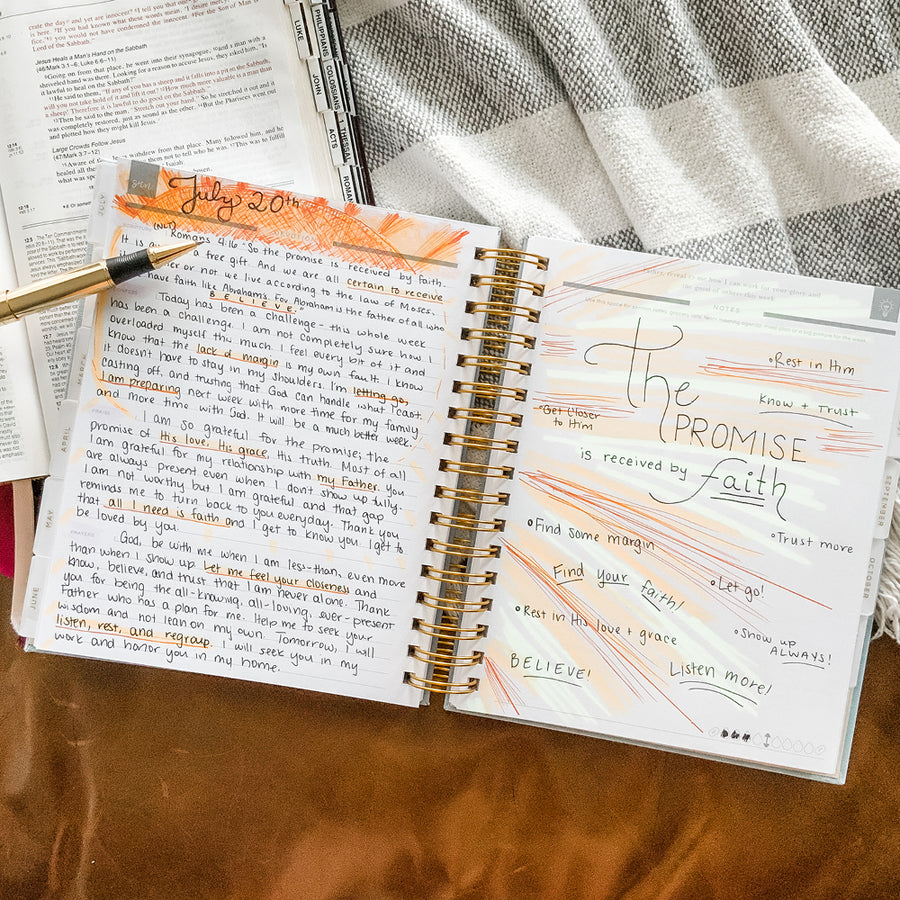 crate the day? and yet are innocent? ¹I tell you that
is here. ⁷If you had known what these words mean, 'I desire mercy,
you would not have condemned the innocent. ⁸For the Son of Man is
Lord of the Sabbath."
Jesus Heals a Man's Hand on the Sabbath
(46/Mark 3:1–6; Luke 6:6–11)
⁹Going on from that place, he went into their synagogue, ¹⁰and a man with a
shriveled hand was there. Looking for a reason to accuse Jesus, they asked him, "Is
it lawful to heal on the Sabbath?"
¹¹He said to them, "If any of you has a sheep and it falls into a pit on the Sabbath,
will you not take hold of it and lift it out? ¹²How much more valuable is a man than
a sheep! Therefore it is lawful to do good on the Sabbath."
¹³Then he said to the man, "Stretch out your hand." So he stretched it out and it
was completely restored, just as sound as the other. ¹⁴But the Pharisees went out
and plotted how they might kill Jesus.
Large Crowds Follow Jesus
(47/Mark 3:7–12)
¹⁵Aware of withdrew from that place. Many followed him, and he
healed all their them not to tell who he was. ¹⁷This was to fulfill
what was Isaiah:
LUKE
JOHN
ACTS
ROMANS
PHILIPPIANS
COLOSSIANS
THESSAL
July 20th
(NLT)
Romans 4:16 - So the promise is received by faith.
It is a free gift. And we are all certain to receive
or not we live according to the law of Moses.
have faith like Abraham's. For Abraham is the father of all who
BELIEVE.
Today has been a challenge - this whole week
has been a challenge. I am not completely sure how I
overloaded myself this much. I feel every bit of it and
know that the lack of margin is my own fault. I know
it doesn't have to stay in my shoulders. I'm letting go,
casting off, and trusting that God can handle what I can't.
I am preparing next week with more time for my family
and more time with God. It will be a much better week.
PRAISE
I am so grateful for the promise; the
promise of His love, His grace, His truth. Most of all
I am grateful for my relationship with my Father. You
are always present even when I don't show up fully.
I am not worthy but I am grateful and that gap
reminds me to turn back to you everyday. Thank you
that all I need is faith and I get to know you. I get to
be loved by you.
PRAYERS
God, be with me when I am less-than, even more
than when I show up. Let me feel your closeness and
know, believe, and trust that I am never alone. Thank
you for being the all-knowing, all-loving, ever-present
Father who has a plan for me. Help me to seek your
wisdom and not lean on my own. Tomorrow, I will
listen, rest, and regroup. I will seek you in my
work and honor you in my home.
MARCH
APRIL
MAY
JUNE
Father, reveal to me how I can work for your glory and
the good of others this week.
NOTES
The
PROMISE
is received by
faith
•Rest in Him
Know + Trust
•Get Closer
to Him
•Find some margin
•Trust more
Find your faith!
•Let go!
•Rest in His love + grace
•Show up
ALWAYS!
BELIEVE!
Listen more!
SEPTEMBER
OCTOBER